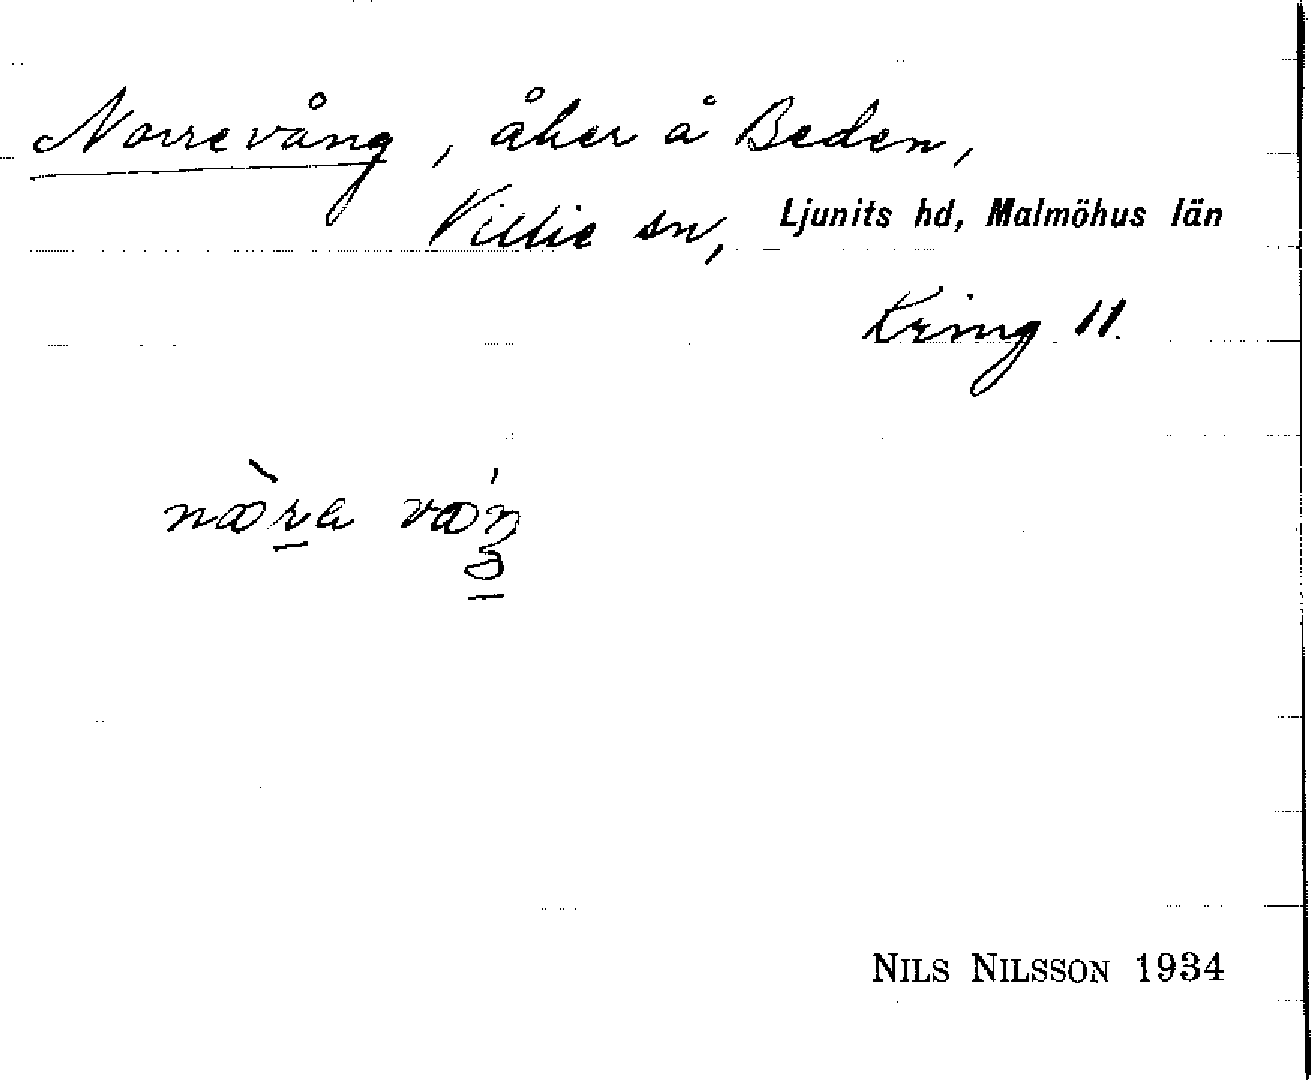 Norrevång, åker å Beden,
Villie sn, Ljunits hd, Malmöhus län
Kring 11.
NILS NILSSON 1934